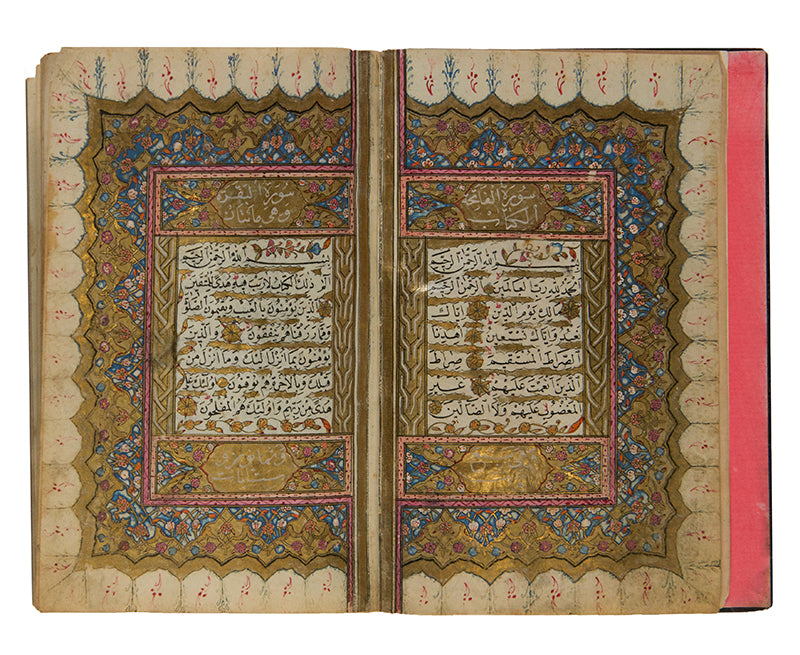 سورة الفاتحة
الكتاب
بسم الله الرحمن الرحيم
الحمد لله رب العالمين الرحمن الرحيم
مالك يوم الدين اياك
نعبد واياك نستعين اهدنا
الصراط المستقيم صراط
الذين انعمت عليهم غير
المغضوب عليهم ولا الضالين
سورة البقرة
وهي مائتان
بسم الله الرحمن الرحيم
الم ذلك الكتاب لا ريب فيه هدى للمتقين
الذين يؤمنون بالغيب ويقيمون الصلوة
ومما رزقناهم ينفقون والذين
يؤمنون بما انزل اليك وما انزل من
قبلك وبالاخرة هم يوقنون اولئك على
هدى من ربهم واولئك هم المفلحون